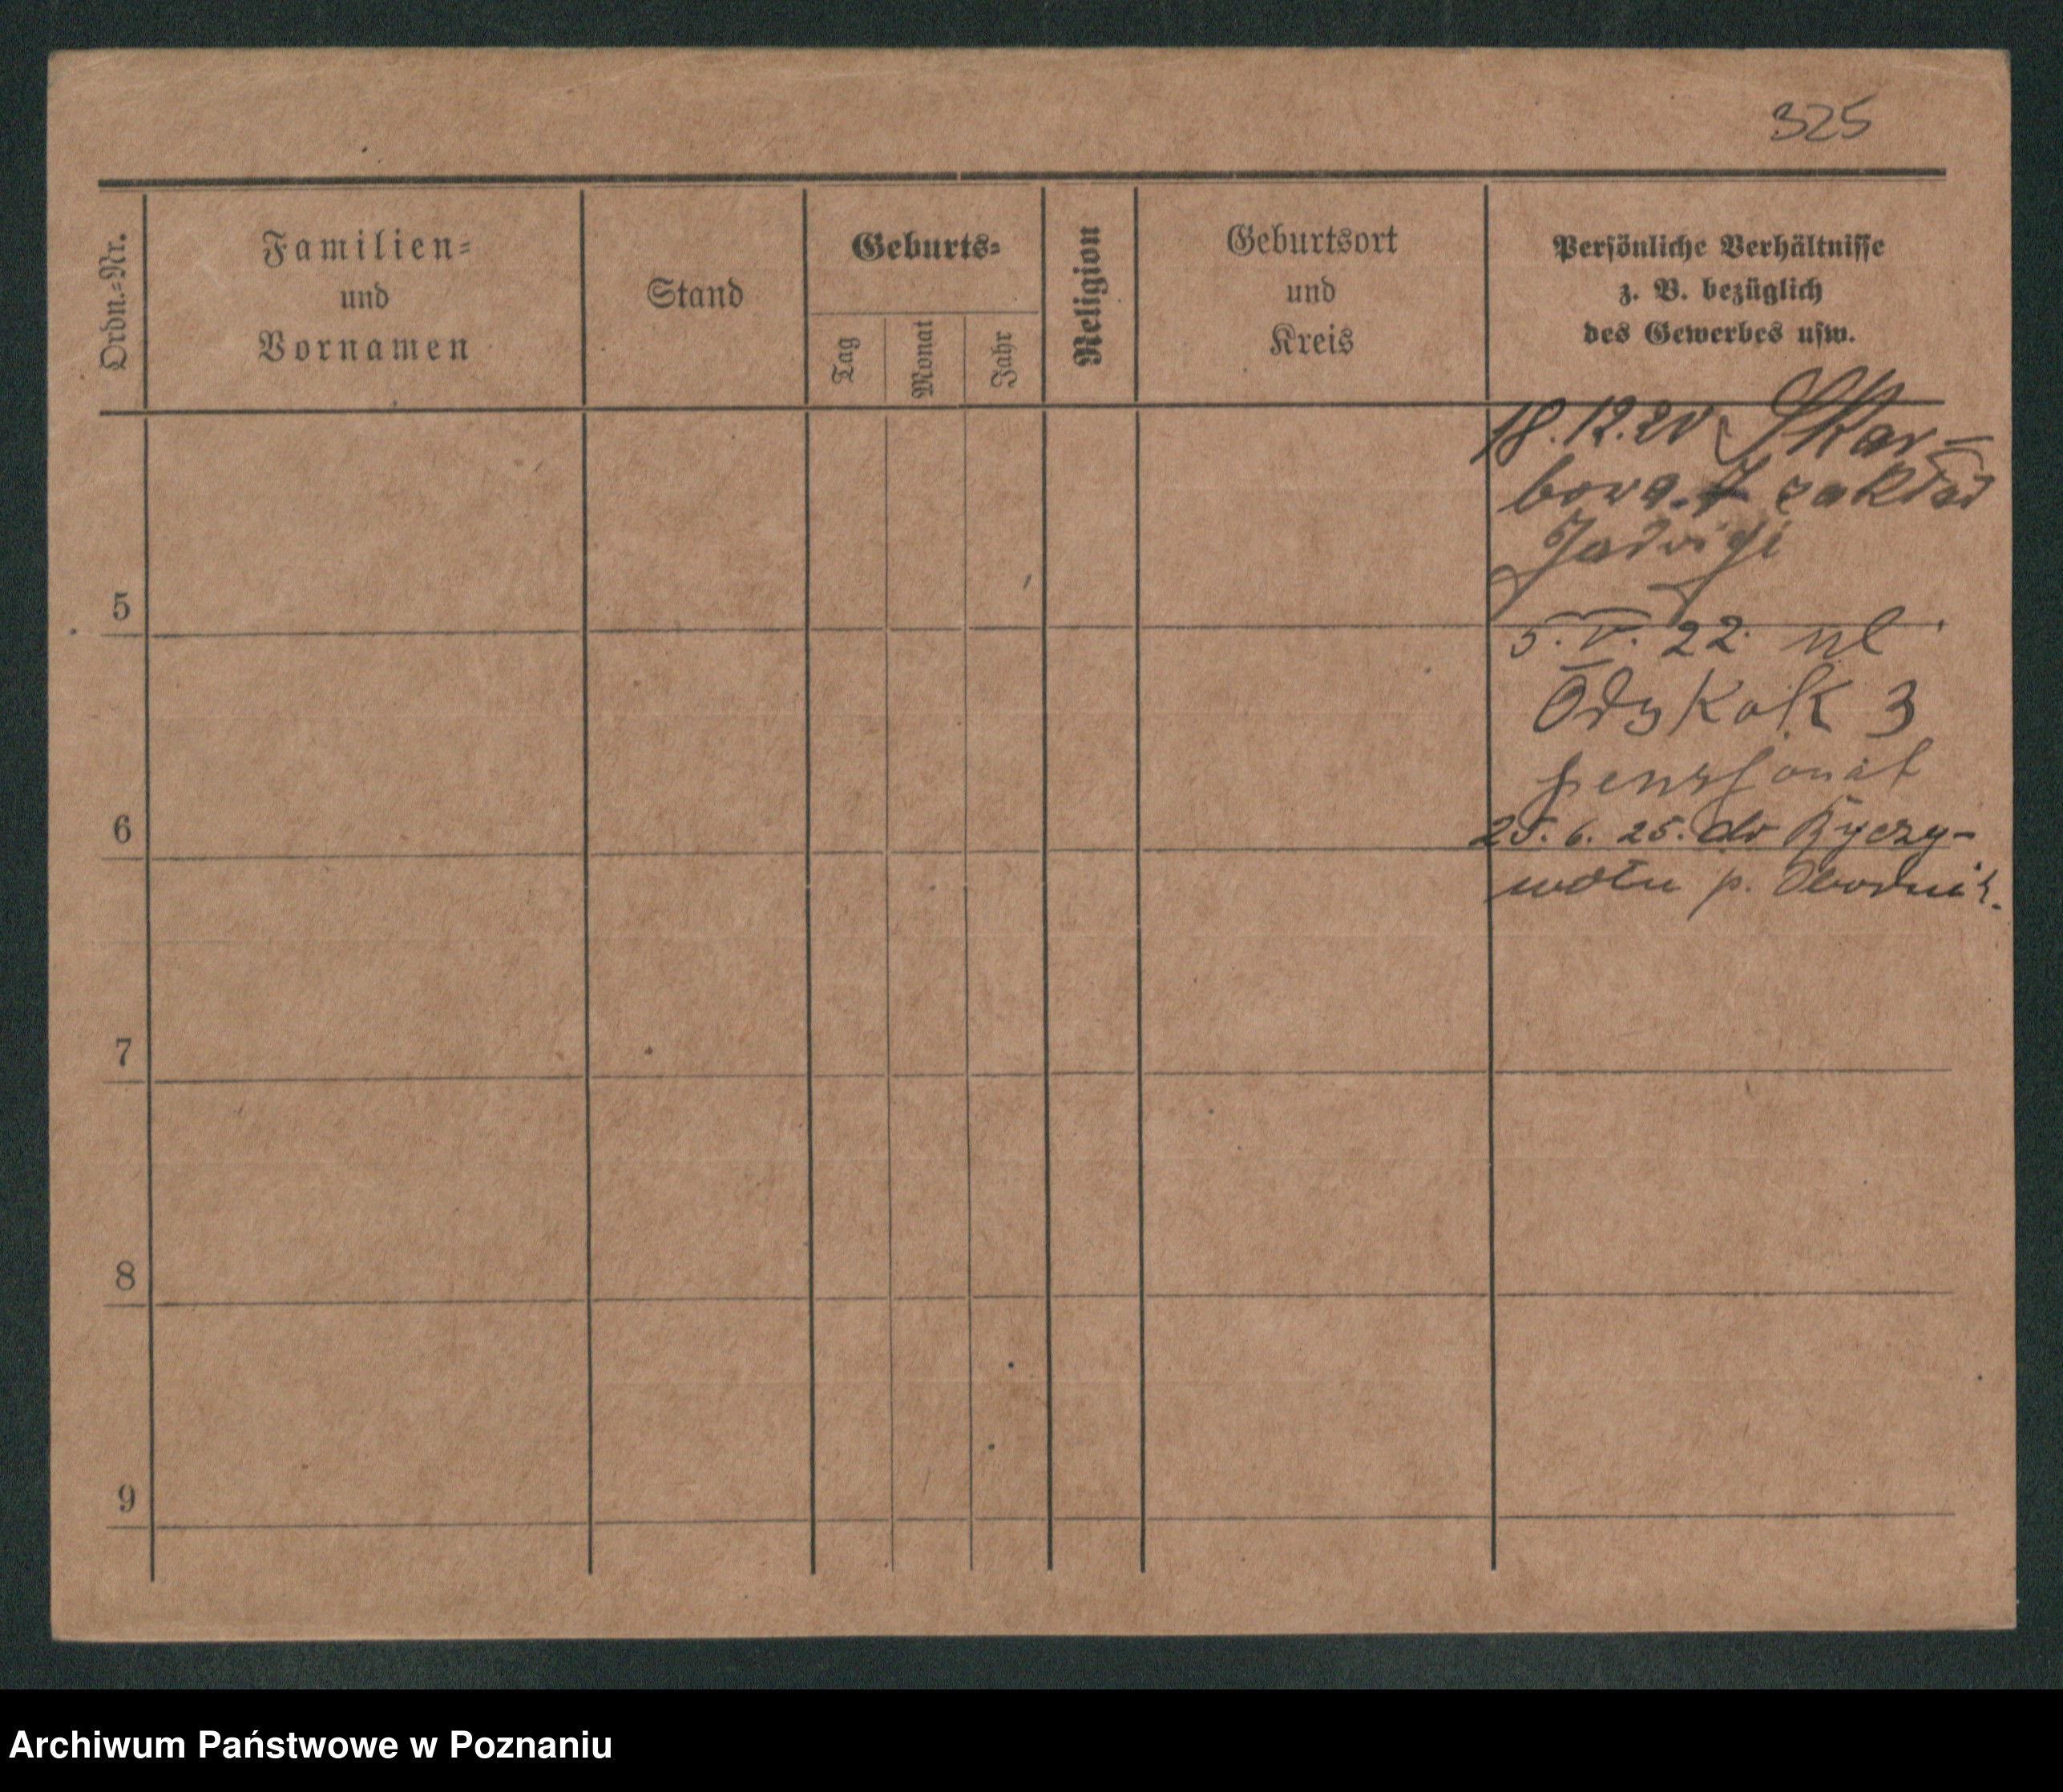 325
Ordn.=Nr.
Familien=
und
Vornamen
Stand
Geburts=
Tag
Monat
Jahr
Religion
Geburtsort
und
Kreis
Persönliche Verhältnisse
z. B. bezüglich
des Gewerbes usw.
18.12.20 Skar-
bowa 7 zakład
Jadwigi
5
5. V. 22
3
pensjonat
6
25. 6. 25. do Ryczy-
wołu p. Obornik.
7
8
9
Archiwum Państwowe w Poznaniu